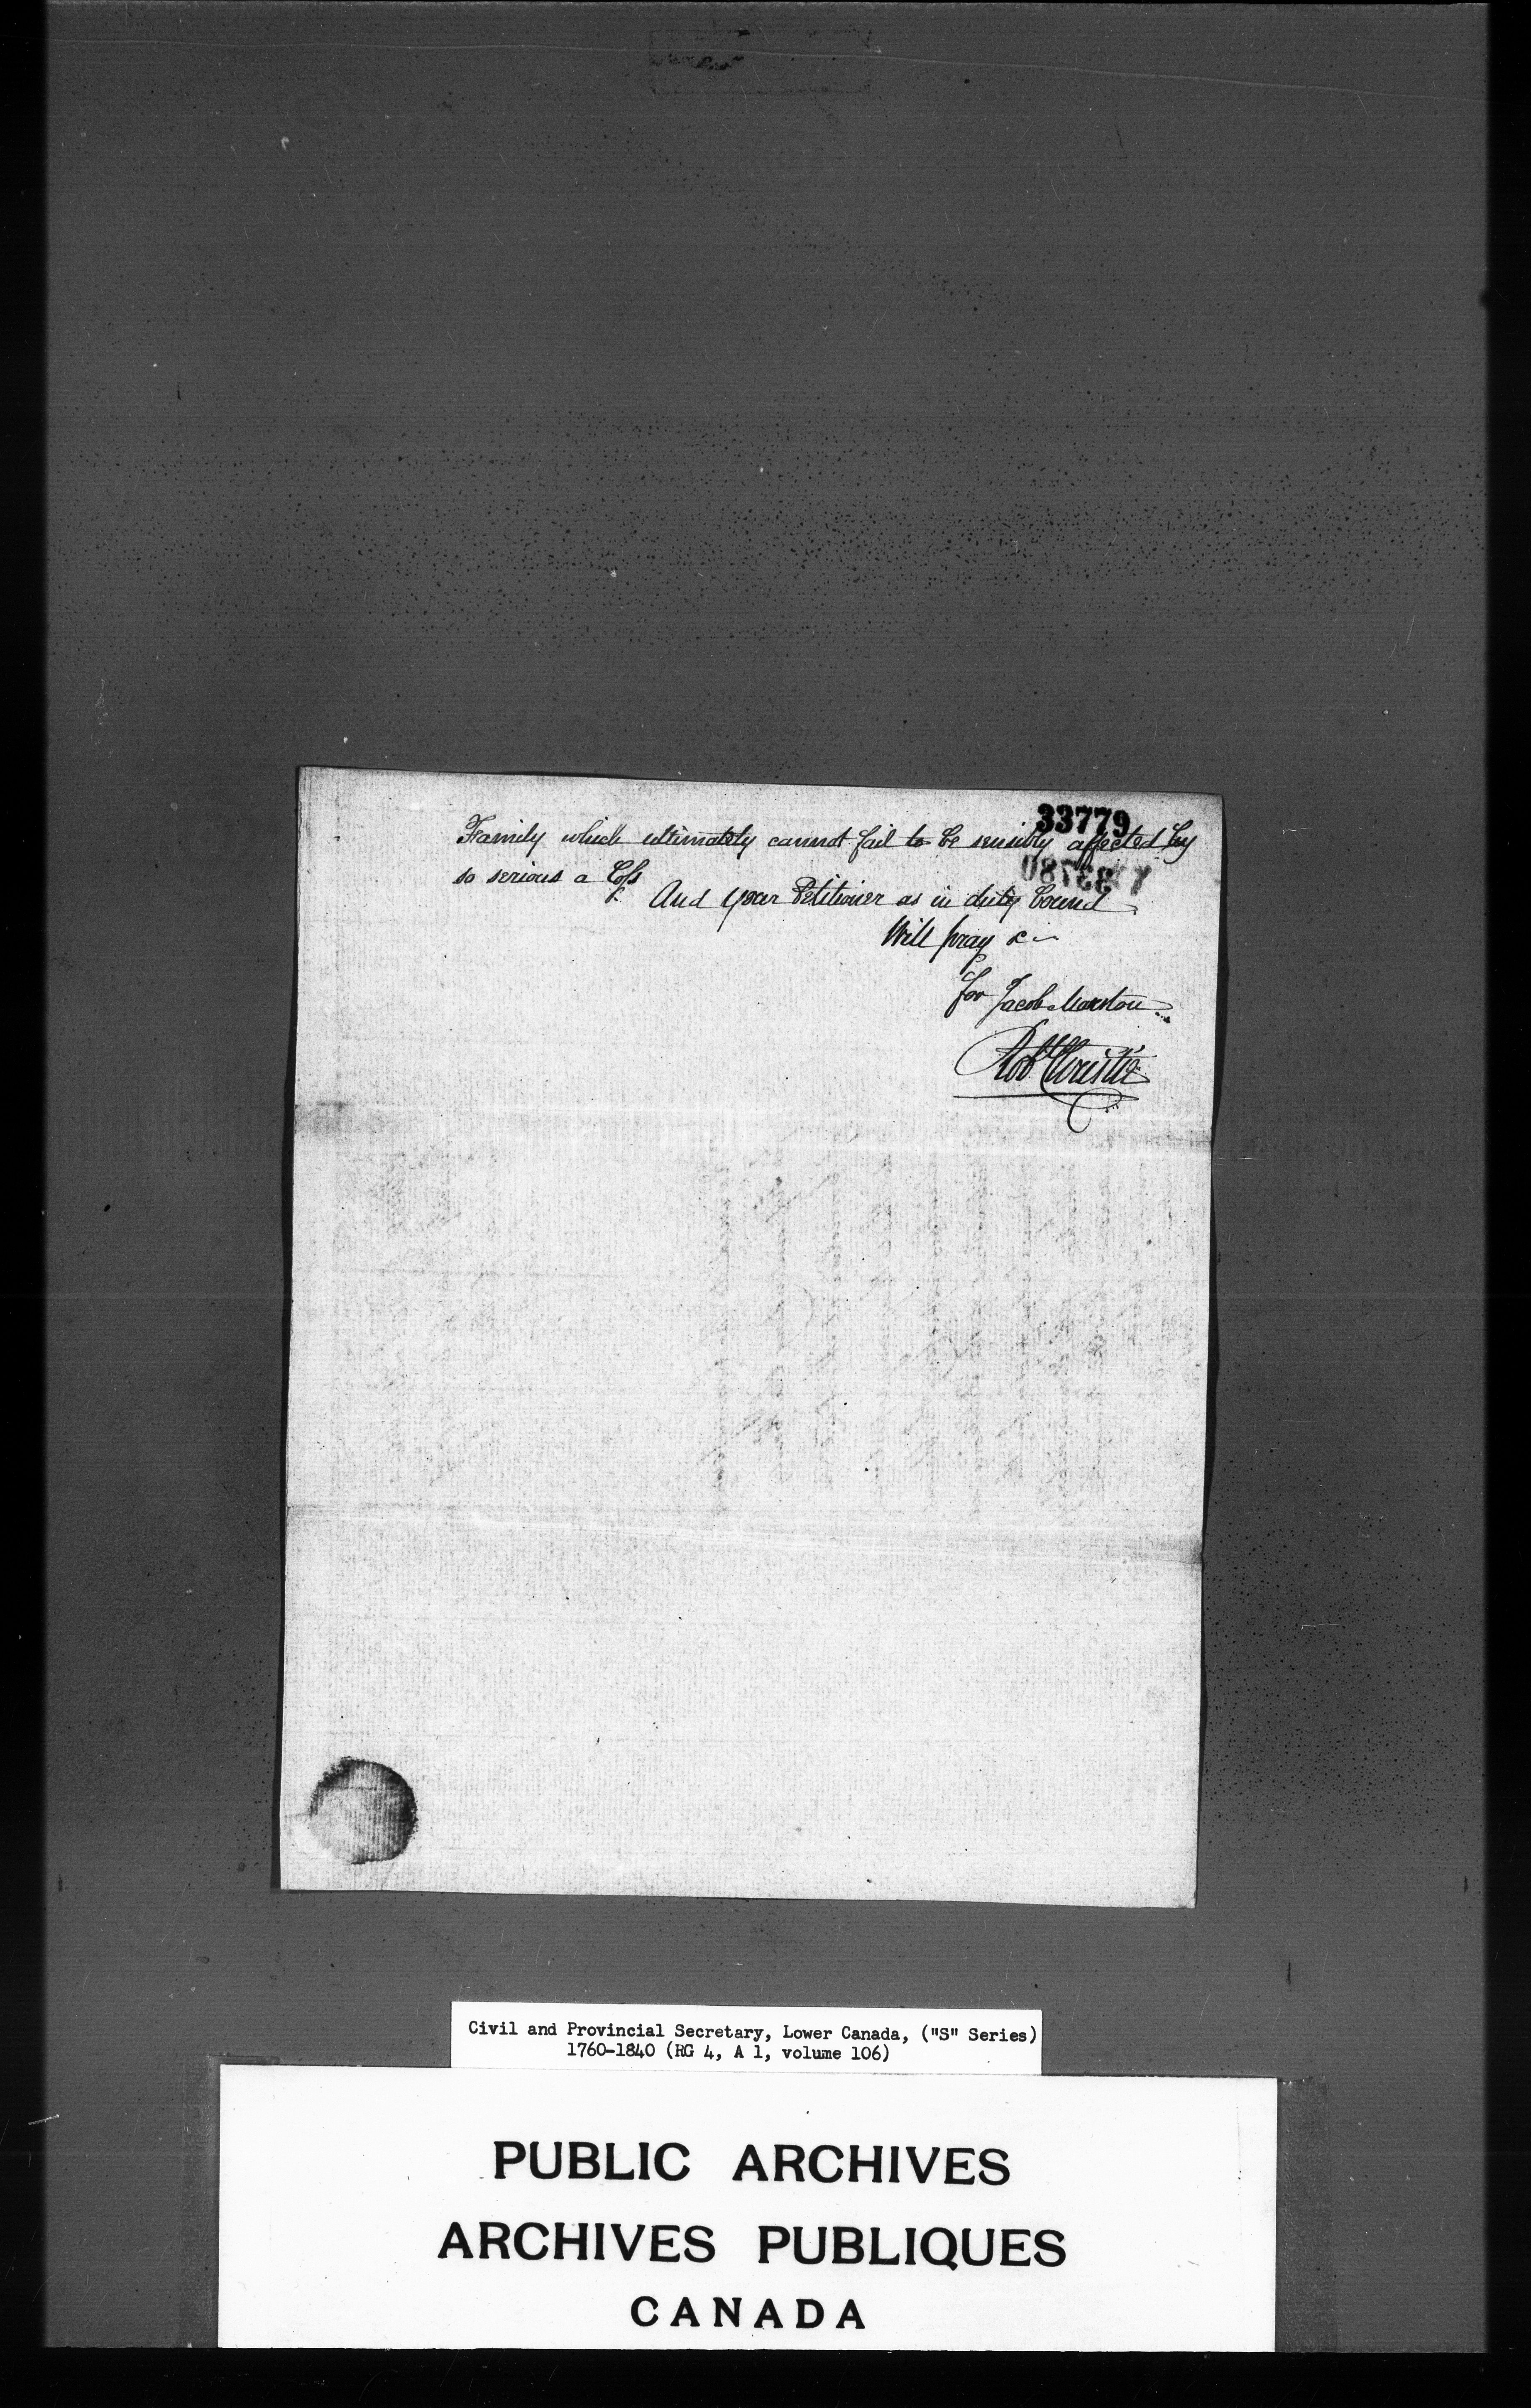 33779
Family which ultimately cannot fail to be sensibly affected by
so serious a Loss
And your Petitioner as in duty bound
Will pray &c
For Jacob Marston
Robt Christie
Civil and Provincial Secretary, Lower Canada, ("S" Series)
1760-1840 (RG 4, A 1, volume 106)
PUBLIC ARCHIVES
ARCHIVES PUBLIQUES
CANADA